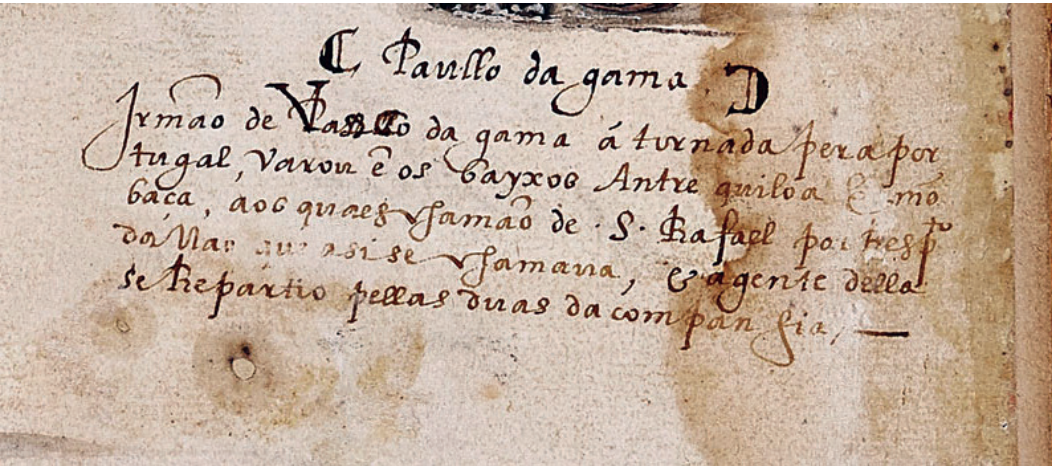 C Paullo da gama D
Irmão de Vasco da gama á tornada pera por
tugal, varou ẽ os bayxos Antre quiloa & mõ
baça, aos quaes chamão de .S. Rafael por resp.to
da Nao que asi se chamaua, & agente della
se Repartio pellas duas da companhia, —